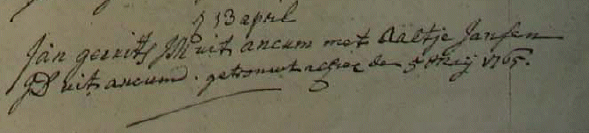 d 13 april
Jan gerrits JM uit ancum met Aaltje Jansen
JD uit ancum. getrouwt alhier den 5 Meij 1765.